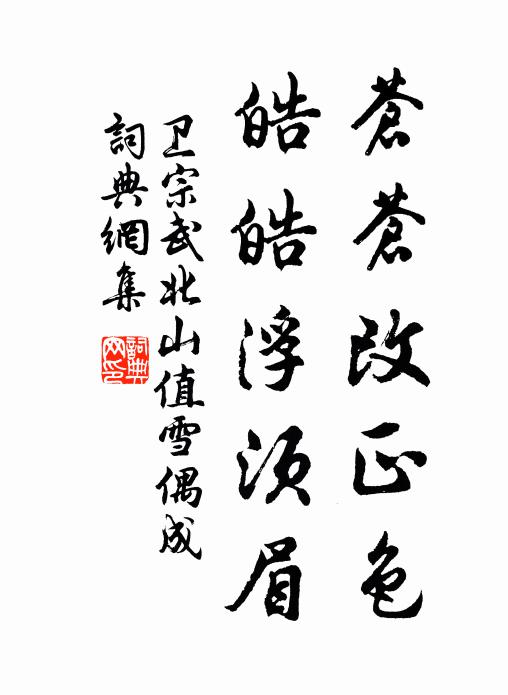 蒼蒼改正色
皓皓浮须眉
卫宗武北山值雪偶成
詞典網集
詞典网印